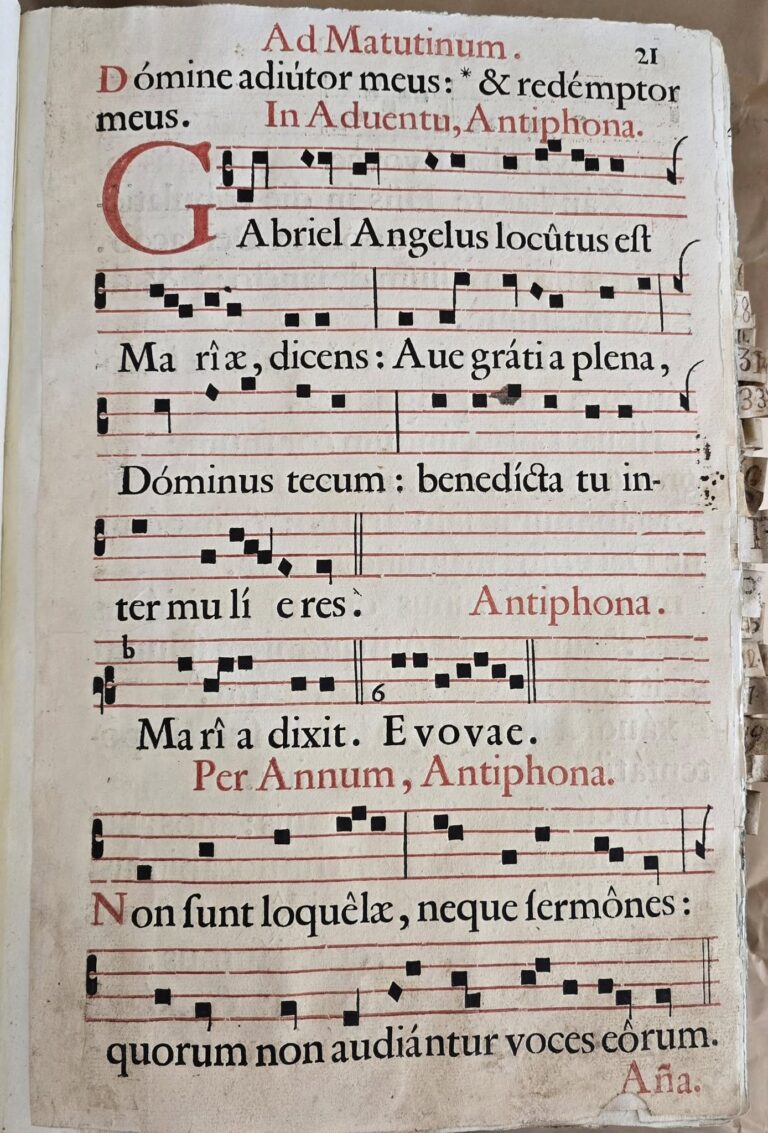 Ad Matutinum. 21
Dómine adiútor meus: * & redémptor
meus. In Aduentu, Antiphona.
GAbriel Angelus locûtus eſt
Ma rîæ, dicens: Aue gráti a plena,
Dóminus tecum: benedícta tu in-
ter mu lí e res.
Antiphona.
b
6
Ma rî a dixit. E v o v a e.
Per Annum, Antiphona.
Non ſunt loquêlæ, neque ſermônes:
quorum non audiántur voces eôrum.
Aña.